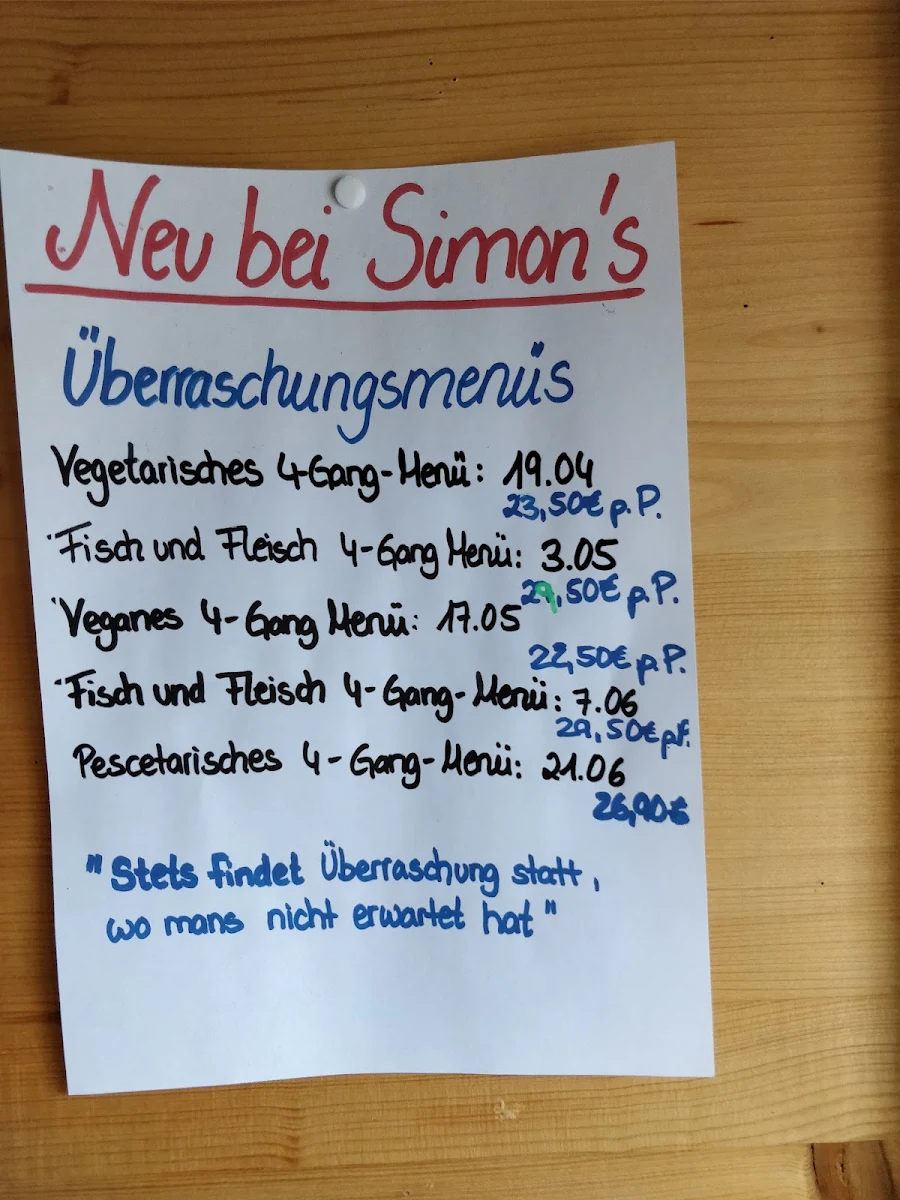 Neu bei Simon's
Überraschungsmenüs
Vegetarisches 4-Gang-Menü: 19.04
23,50€ p.P.
Fisch und Fleisch 4-Gang Menü: 3.05
29,50€ p.P.
Veganes 4-Gang Menü: 17.05
22,50€ p.P.
Fisch und Fleisch 4-Gang-Menü: 7.06
29,50€ p.P.
Pescetarisches 4-Gang-Menü: 21.06
26,90€
"Stets findet Überraschung statt,
wo mans nicht erwartet hat"